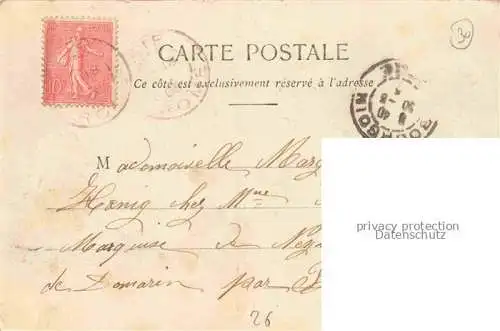 30
CARTE POSTALE
Ce côté est exclusivement réservé à l'adresse
Mademoiselle Marg
Hœnig chez Mme
Marquise de Nég
de Domarin par
privacy protection
Datenschutz
26